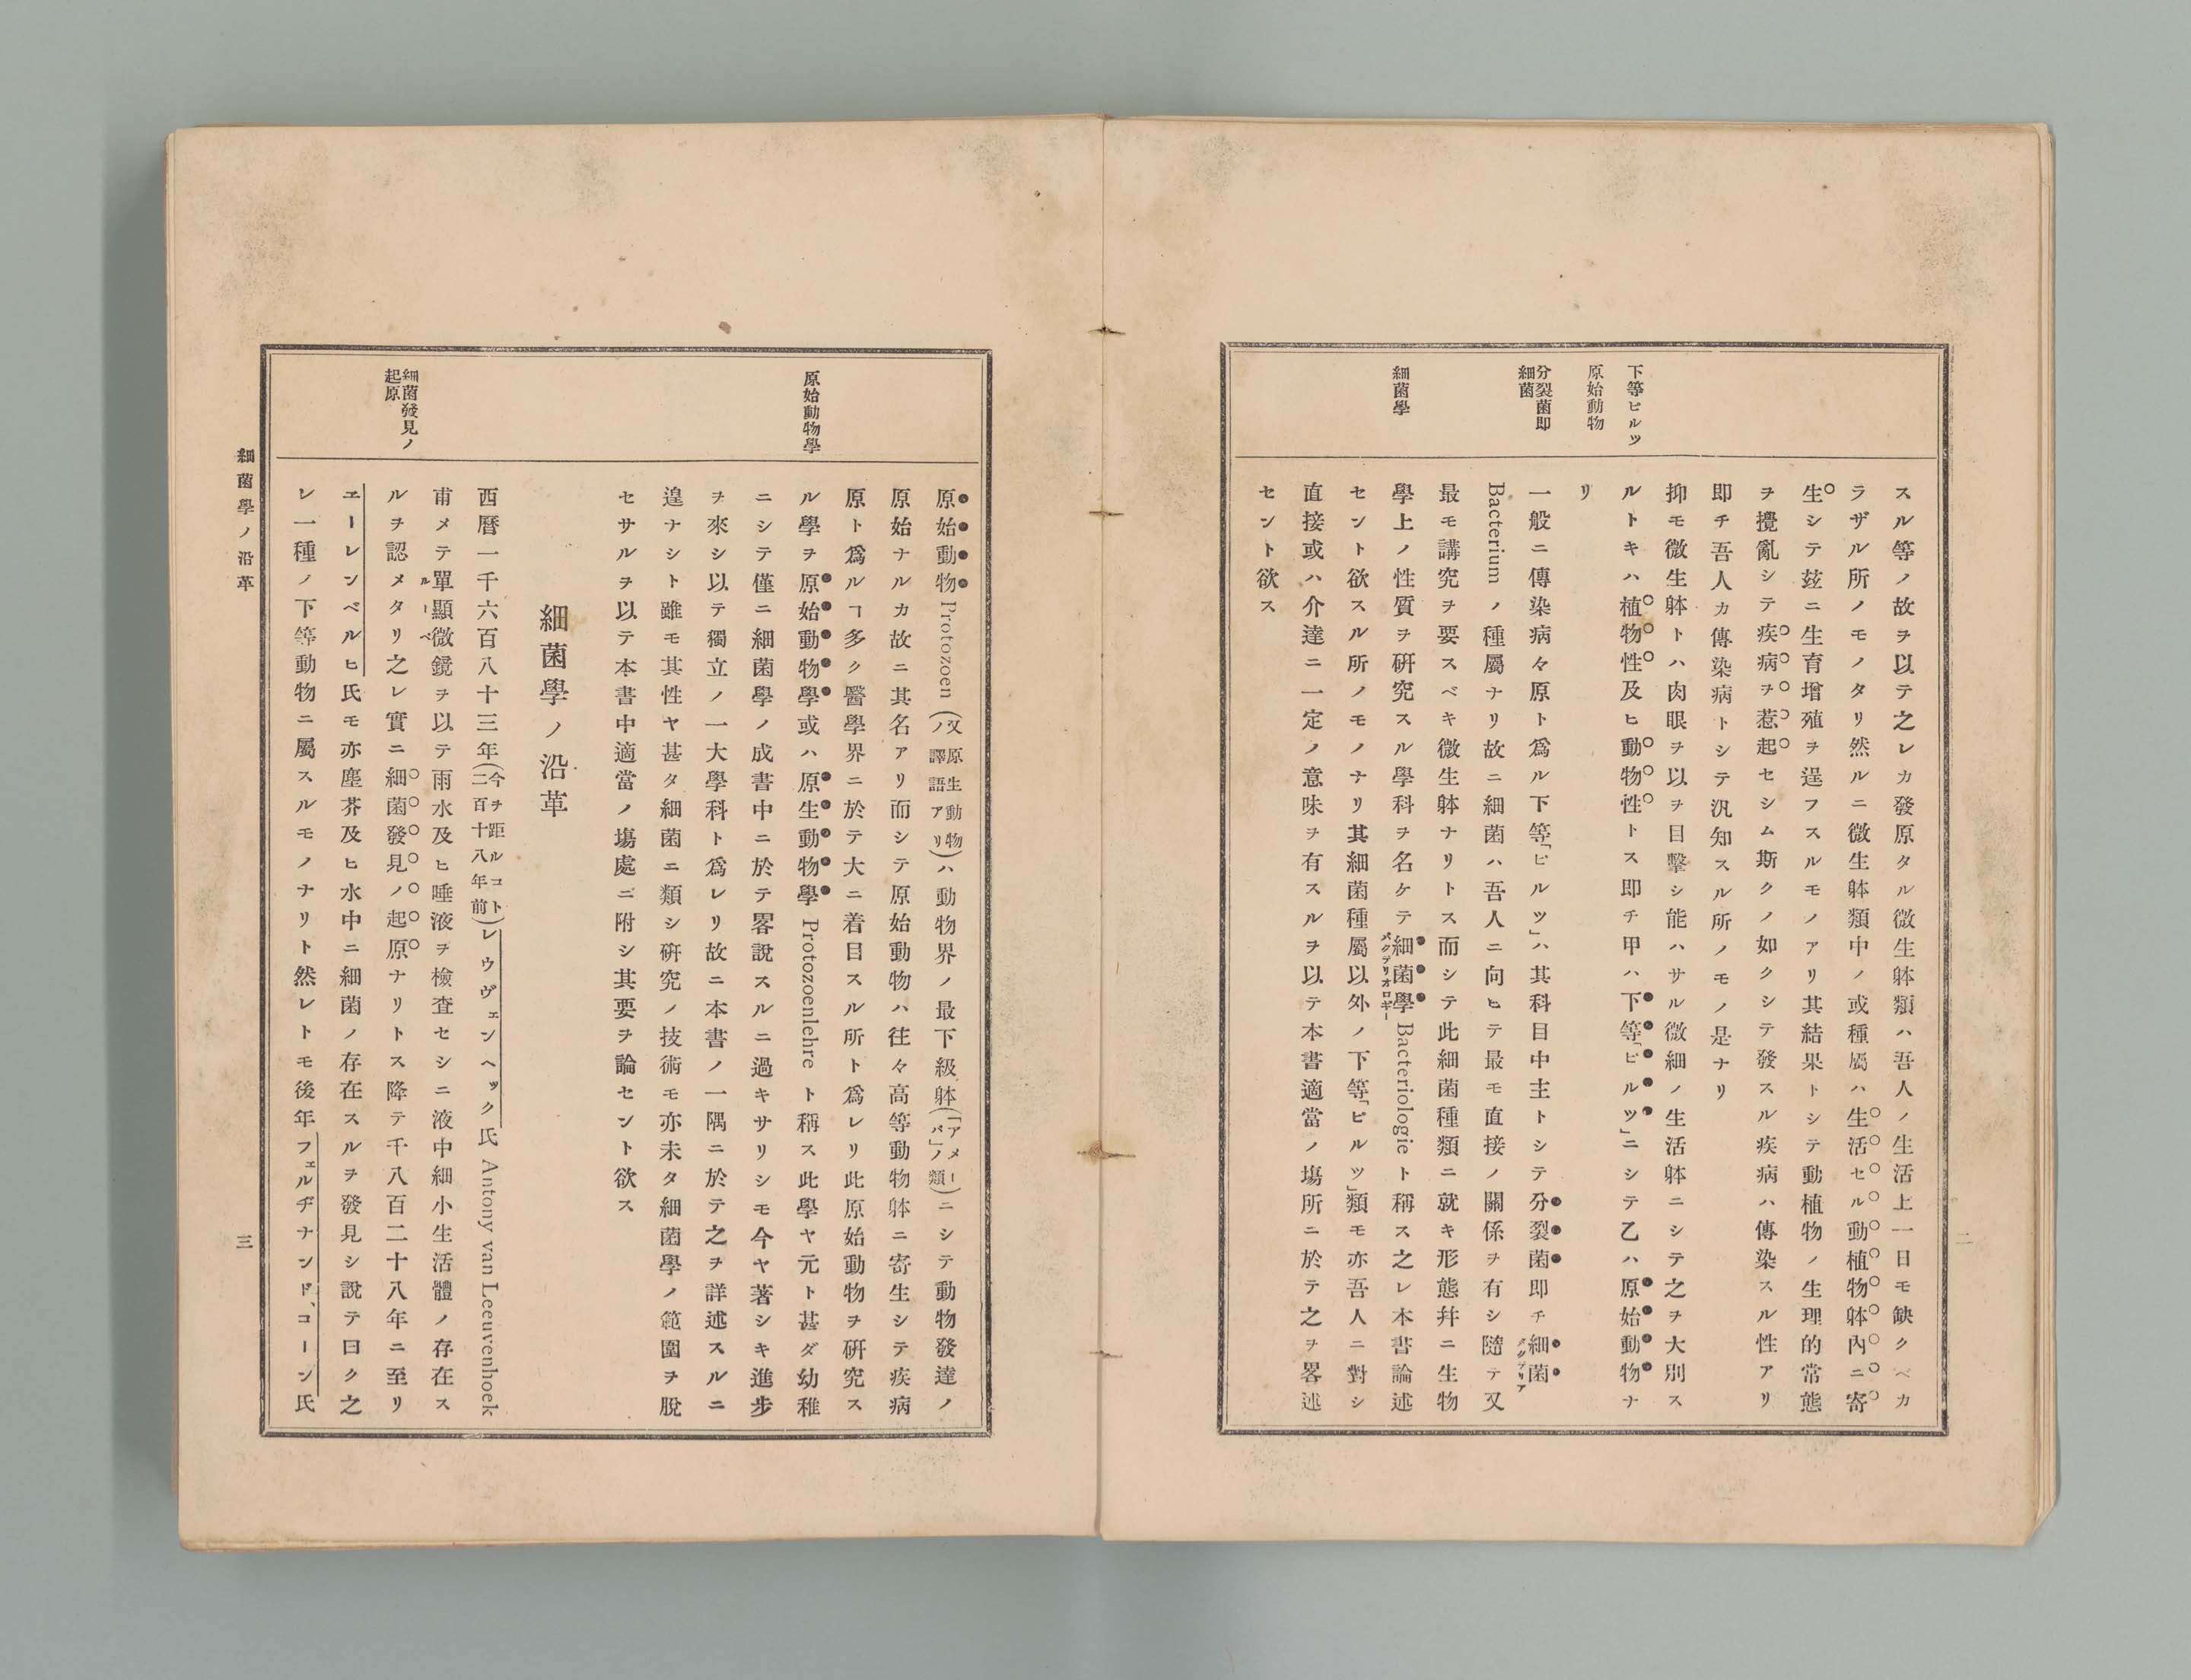 二
下等ピルツ
原始動物
分裂菌即
細菌
細菌學
スル等ノ故ヲ以テ之レカ發原タル微生躰類ハ吾人ノ生活上一日モ缺クベカ
ラザル所ノモノタリ然ルニ微生躰類中ノ或種屬ハ生活セル動植物躰內ニ寄
生シテ玆ニ生育增殖ヲ逞フスルモノアリ其結果トシテ動植物ノ生理的常態
ヲ攪亂シテ疾病ヲ惹起セシム斯クノ如クシテ發スル疾病ハ傳染スル性アリ
卽チ吾人カ傳染病トシテ汎知スル所ノモノ是ナリ
抑モ微生躰トハ肉眼ヲ以ヲ目擊シ能ハサル微細ノ生活躰ニシテ之ヲ大別ス
ルトキハ植物性及ヒ動物性トス卽チ甲ハ下等「ピルツ」ニシテ乙ハ原始動物ナ
リ
一般ニ傳染病々原ト爲ル下等「ピルツ」ハ其科目中主トシテ分裂菌卽チ細菌バクテリア
Bacterium ノ種屬ナリ故ニ細菌ハ吾人ニ向ヒテ最モ直接ノ關係ヲ有シ隨テ又
最モ講究ヲ要スベキ微生躰ナリトス而シテ此細菌種類ニ就キ形態幷ニ生物
學上ノ性質ヲ硏究スル學科ヲ名ケテ細菌學バクテリオロギー Bacteriologie ト稱ス之レ本書論述
セント欲スル所ノモノナリ其細菌種屬以外ノ下等「ピルツ」類モ亦吾人ニ對シ
直接或ハ介達ニ一定ノ意味ヲ有スルヲ以テ本書適當ノ塲所ニ於テ之ヲ畧述
セント欲ス
原始動物學
細菌發見ノ
起原
原始動物 Protozoen (又原生動物ノ譯語アリ)ハ動物界ノ最下級躰(「アメーバ」ノ類)ニシテ動物發達ノ
原始ナルカ故ニ其名アリ而シテ原始動物ハ往々高等動物躰ニ寄生シテ疾病
原ト爲ルヿ多ク醫學界ニ於テ大ニ着目スル所ト爲レリ此原始動物ヲ硏究ス
ル學ヲ原始動物學或ハ原生動物學 Protozoenlehre ト稱ス此學ヤ元ト甚ダ幼稚
ニシテ僅ニ細菌學ノ成書中ニ於テ畧說スルニ過キサリシモ今ヤ著シキ進步
ヲ來シ以テ獨立ノ一大學科ト爲レリ故ニ本書ノ一隅ニ於テ之ヲ詳述スルニ
遑ナシト雖モ其性ヤ甚タ細菌ニ類シ硏究ノ技術モ亦未タ細菌學ノ範圍ヲ脫
セサルヲ以テ本書中適當ノ塲處ニ附シ其要ヲ論セント欲ス
細菌學ノ沿革
西曆一千六百八十三年(今ヲ距ルコト二百十八年前)レウヴェンヘック氏 Antony van Leeuvenhoek
甫メテ單顯微鏡ルーペヲ以テ雨水及ヒ唾液ヲ檢査セシニ液中細小生活體ノ存在ス
ルヲ認メタリ之レ實ニ細菌發見ノ起原ナリトス降テ千八百二十八年ニ至リ
エーレンベルヒ氏モ亦塵芥及ヒ水中ニ細菌ノ存在スルヲ發見シ說テ曰ク之
レ一種ノ下等動物ニ屬スルモノナリト然レトモ後年フェルヂナンド、コーン氏
細菌學ノ沿革
三